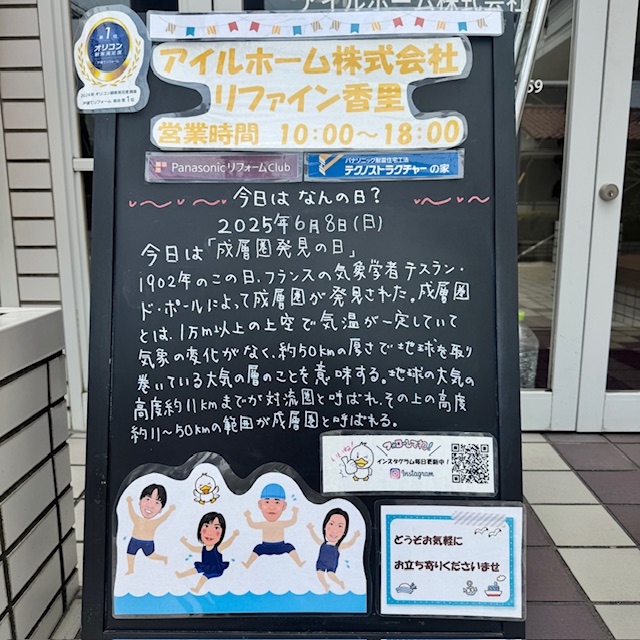 アイルホーム株式会社
59
第1位
オリコン
顧客満足度
2024年 オリコン顧客満足度調査
戸建てリフォーム 総合第1位
アイルホーム株式会社
リファイン香里
営業時間 10:00～18:00
Panasonic リフォームClub
パナソニック耐震住宅工法
テクノストラクチャーの家
今日は なんの日?
2025年6月8日(日)
今日は「成層圏発見の日」
1902年のこの日、フランスの気象学者テスラン・
ド・ボールによって成層圏が発見された。成層圏
とは、1万m以上の上空で気温が一定していて
気象の変化がなく、約50kmの厚さで地球を取り
巻いている大気の層のことを意味する。地球の大気の
高度約11kmまでが対流圏と呼ばれ、その上の高度
約11～50kmの範囲が成層圏と呼ばれる。
いいね!
フォローしてね!
インスタグラム毎日更新中!
Instagram
どうぞお気軽に
お立ち寄りくださいませ